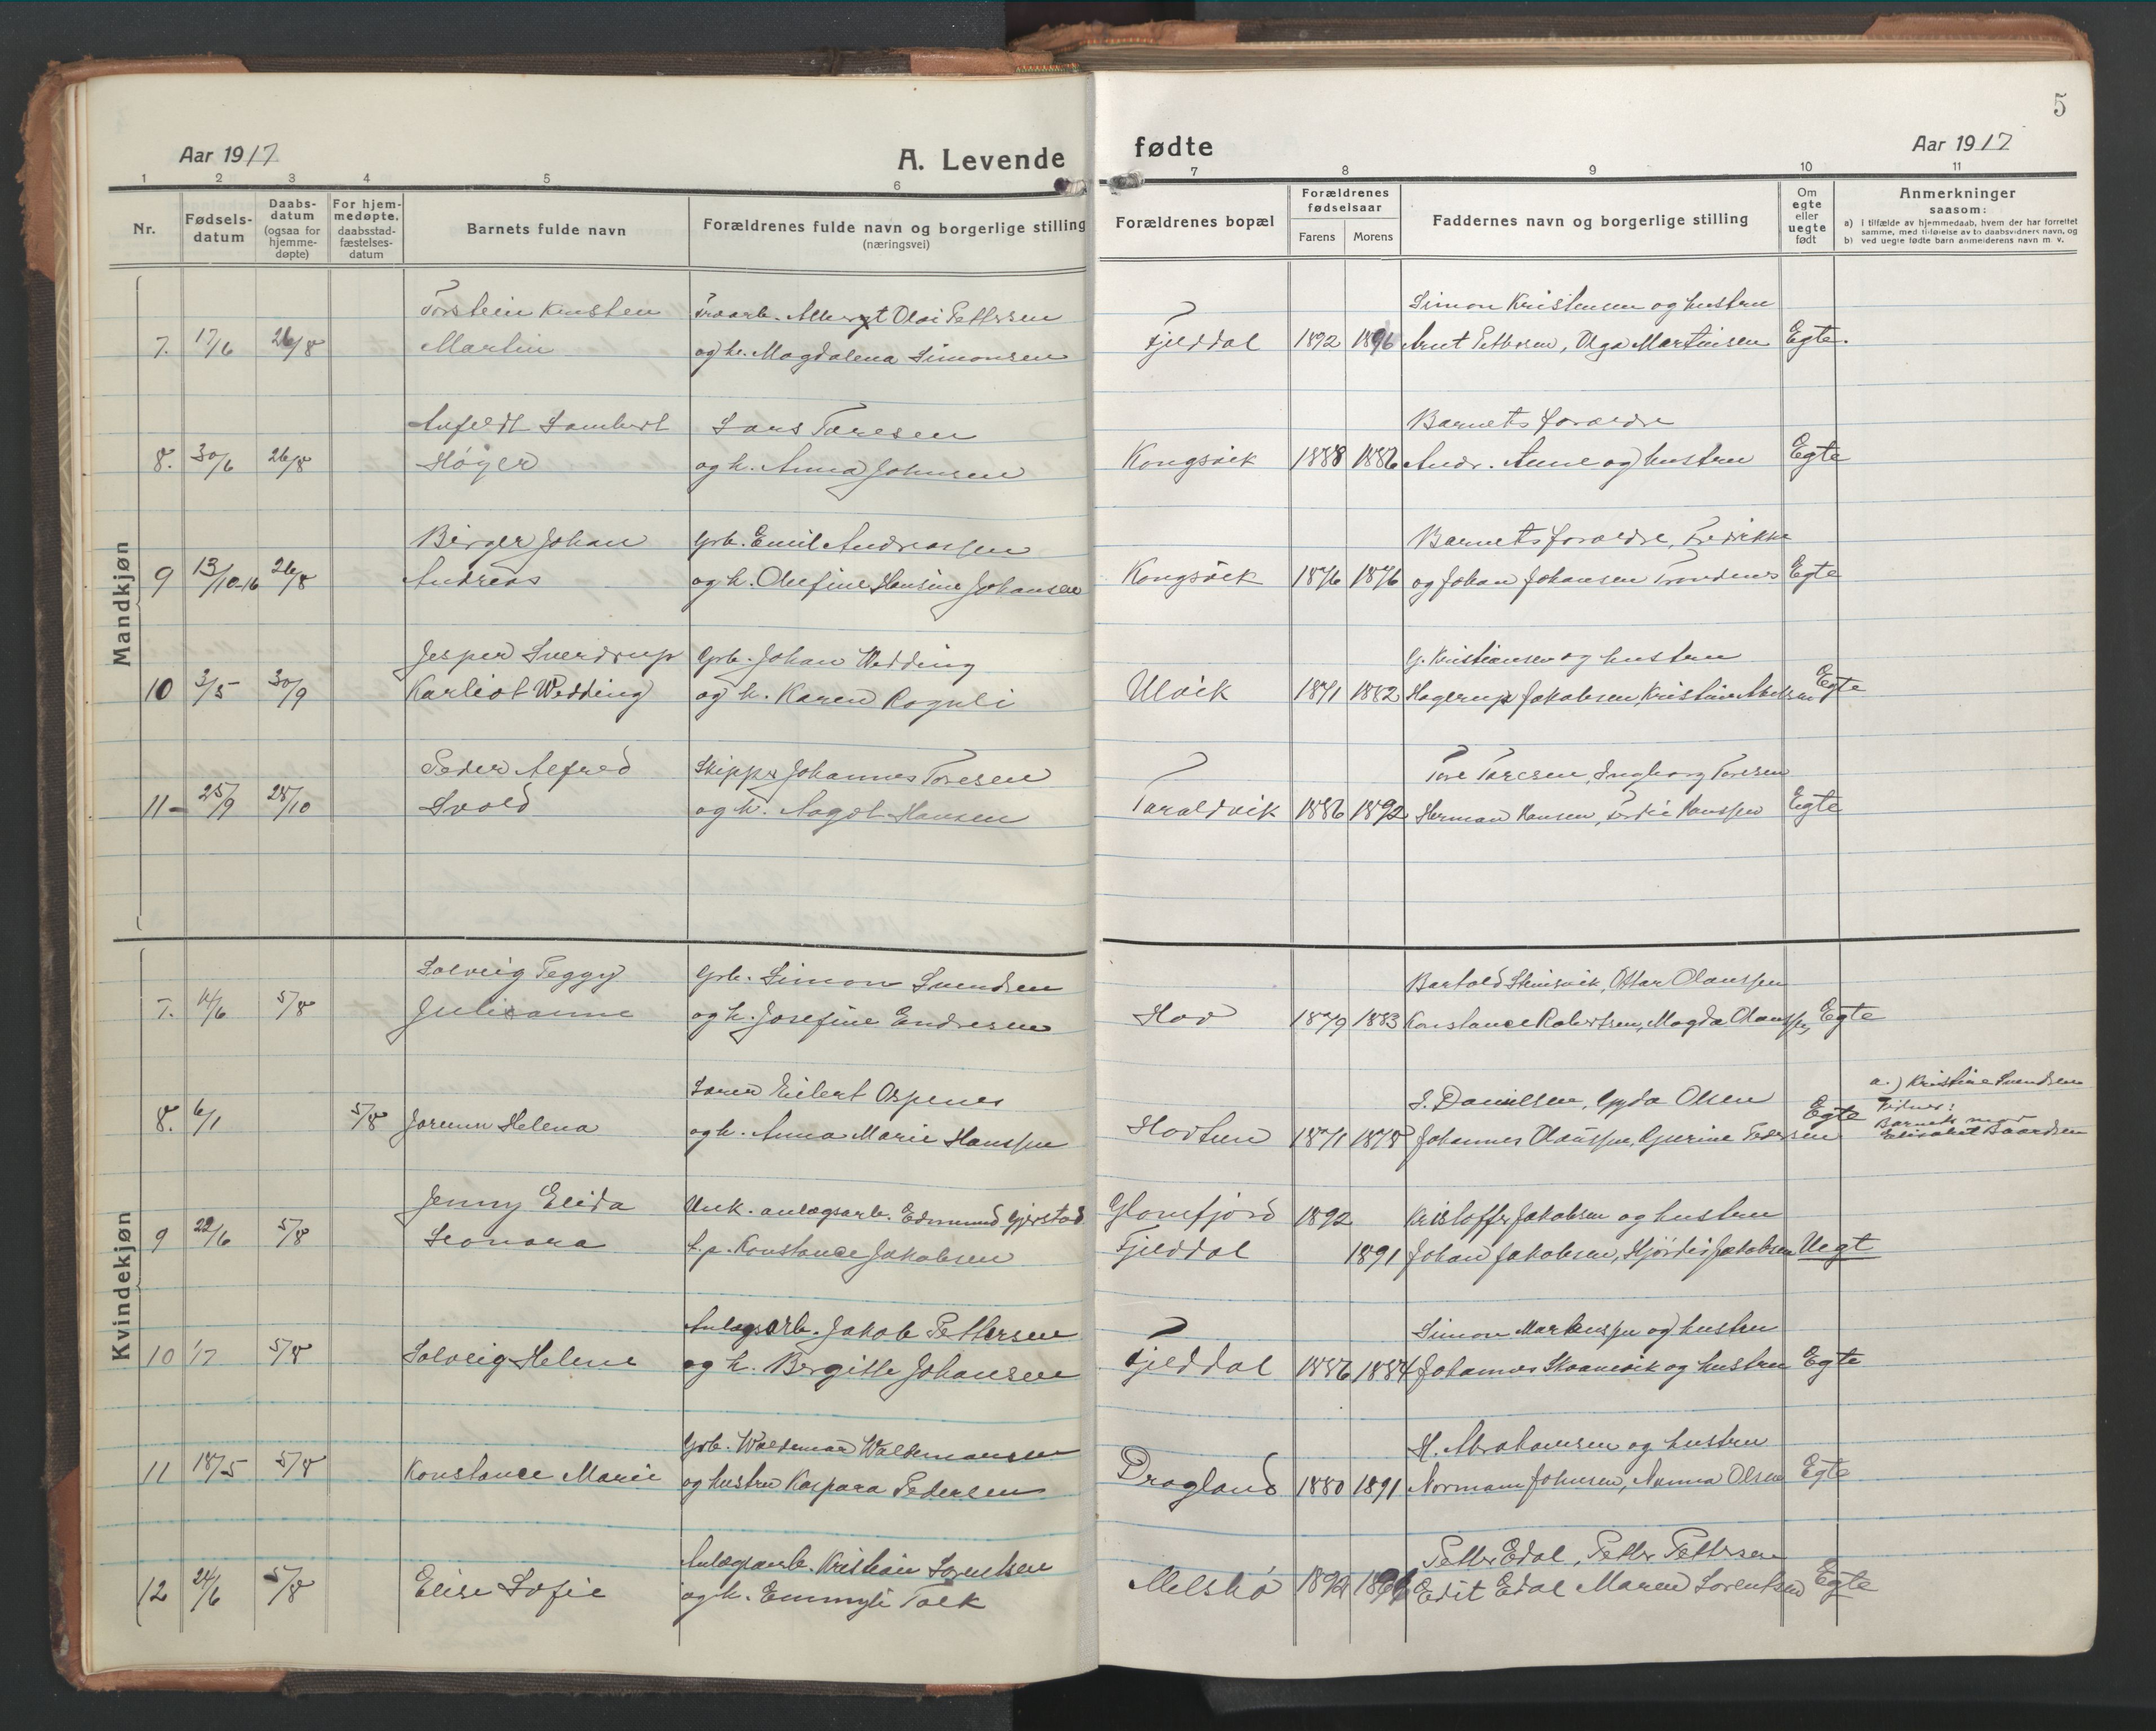 5
Aar 1917
A. Levende
fødte
Aar 1917
1 2 3 4 5 6 7 8 9 10 11
Nr.
Fødsels-
datum
Daabs-
datum
(ogsaa for
hjemme-
døpte)
For hjem-
medøpte,
daabsstad-
fæstelses-
datum
Barnets fulde navn
Forældrenes fulde navn og borgerlige stilling
(næringsvei)
Forældrenes bopæl
Forældrenes
fødselsaar
Farens Morens
Faddernes navn og borgerlige stilling
Om
egte
eller
uegte
født
Anmerkninger
saasom:
a) i tilfælde av hjemmedaab, hvem der har forrettet
samme, med tilføielse av to daabsvidners navn, og
b) ved uegte fødte barn anmelderens navn m. v.
Mandkjøn
Torstein Kristen Olai Pettersen Simon Kristensen og hustru
7. 17/6 26/8 Martin og h. Magdalena Simonsen Fjelddal 1892 1896 Arnt Pettersen, Olga Martinsen Egte.
Lambert Lars Toresen Barnets forældre
8. 30/6 26/8 Høyer og h. Anna Johnsen Kongsvik 1888 1886 Andr. Aune og hustru Egte
Birger Johan Grb. Emil Andreassen Barnets forældre, Fredrikke
9 13/10-16 26/8 Andreas og h. Olufine Hansine Johansen Kongsvik 1876 1876 og Johan Johansen Trondenes Egte
Jesper Sverdrup Grb. Johan Wedding G. Kristiansen og hustru
10 3/5 30/9 Karliot Wedding og h. Karen Rognli Ulvik 1871 1882 Hagerup Jakobsen, Egte
Peder Alfred Skipper Johannes Toresen Tore Toresen, Ingborg Toresen
11 25/9 28/10 Svold og h. Aagot Hansen Taraldvik 1886 1892 Herman Hansen, Hanssen Egte
Kvindekjøn
Solveig Peggy Grb. Simon Svendsen Bartold Steinsvik, Ottar Olaussen
7. 14/6 5/8 Julianne og h. Josefine Endresen Hov 1879 1883 Konstance Robertsen, Magda Olaussen, Egte
Søren Eilert Ospenes S. Danielsen, Gyda Olsen a.) Kristine Svendsen
8. 6/1 5/8 Jorunn Helena og h. Anna Marie Hanssen Hovtun 1871 1878 Johannes Olaussen, Gjerine Pedersen Egte Vidner:
Barnets mor
Elisabet Baardsen
Jenny Elida Unk. anlægsarb. Edmund Gjerstad Glomfjord 1892 Kristoffer Jakobsen og hustru
9 22/6 5/8 Leonora f.p. Konstance Jakobsen Fjelddal 1891 Johan Jakobsen, Hjørdis Jakobsen Uegt
Anlægsarb. Jakob Pettersen Simon Markussen og hustru
10 1/7 5/8 Solveig Helene og h. Bergitte Johansen Fjelddal 1886 1884 Johannes Skaanevik og hustru Egte
Grb. Waldemar Waldemarsen H. Abrahamsen og hustru
11 18/5 5/8 Konstance Marie og hustru Kaspara Pedersen Dragland 1880 1891 Normann Johnsen, Nanna Olsen Egte
Anlægsarb. Kristian Lorentsen Petter Edal, Petter Pettersen
12 24/6 5/8 Elise Sofie og h. Emmyli Falk Melshø Edit Edal Maren Lorentsen Egte